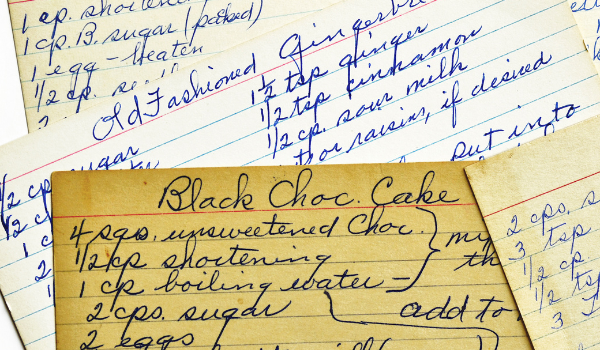 1 cp. shortening
1 cp. B. sugar (packed)
1 egg - beaten
1/2 cp.
Old Fashioned Gingerbre
1 1/2 tsp ginger
1/2 tsp cinnamon
1/2 cp. sour milk
or raisins, if desired
put in to
1/2 cp sugar
1/2 c
1 c
2
Black Choc. Cake
4 sqs. unsweetened Choc.
1/2 cp shortening
1 cp boiling water -
2 cps. sugar
2 eggs
add to
2 cps. s
3 tsp
1/2 cp.
1/2 tsp
3